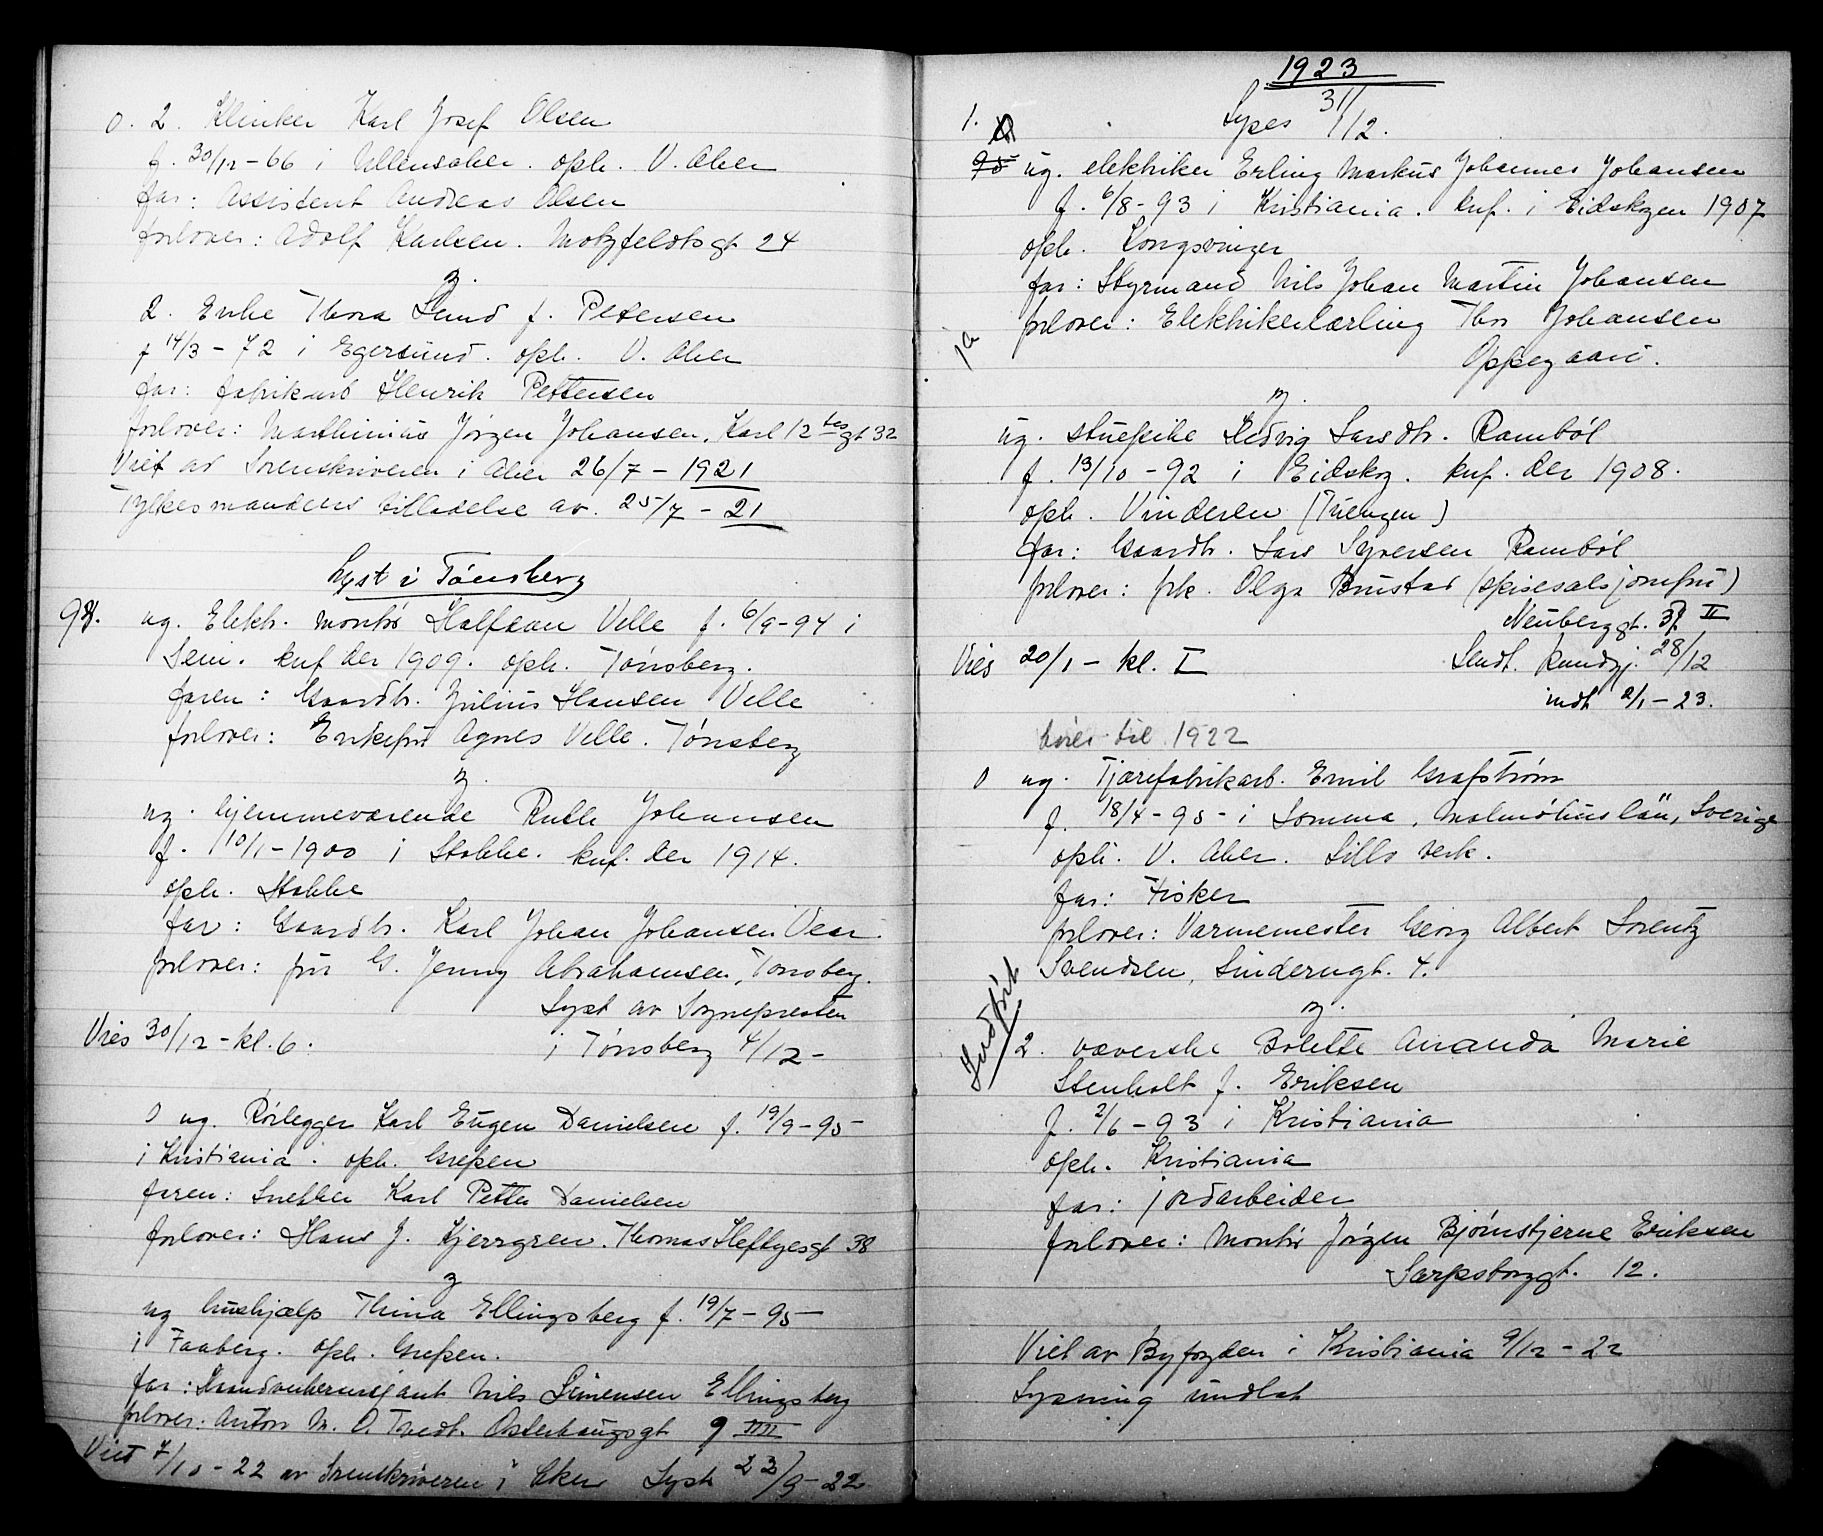 0. 2. Klinker Karl Josef Olsen
f. 30/12 - 66 i Ullensaker. oph. V. Aker
far: Assistent Andreas Olsen
forlover: Adolf Karlsen. Motzfeldtsgt 24
og
2. Enke Thora Lund f. Petersen
f 14/3 - 72 i Egersund. oph. V. Aker
far: fabrikarb Henrik Pettersen
forlover: Marthinius Jørgen Johansen, Karl 12 tes gt 32
Viet av Sorenskriveren i Aker 26/7 - 1921
Fylkesmandens tilladelse av. 25/7 - 21
Lyst i Tønsberg
94. ug. Elektr. montør Halfdan Velle f. 6/9 - 94 i
Sem. knf der 1909. oph. Tønsberg.
faren: Gaardbr. Julius Hansen Velle
forlover: Enkefru Agnes Velle. Tønsberg
og
ug. hjemmeværende Ruth Johansen
f. 10/1 - 1900 i Stokke. knf. der 1914.
oph. Stokke
far: Gaardbr. Karl Johan Johansen Vear.
forlover: fru G. Jenny Abrahamsen, Tønsberg.
Lyst av Sognepresten
i Tønsberg 4/12 -
Vies 30/12 - kl. 6.
0 ug. Rørlegger Karl Eugen Danielsen f. 19/9 - 95
i Kristiania. oph. Grefsen
faren: Snekker Karl Petter Danielsen
forlover: Hans J. Kjerrgren. Thomas Heftyesgt 38
og
ug hushjælp Thina Ellingsberg f. 19/7 - 95
i Faaberg. oph. Grefsen.
far: Nils Simensen Ellingsberg
forlover: Anton M. O. Tvedt. Osterhausgt 9 IIII
Viet 7/10 - 22 av Sorenskriveren i Aker Lyst 23/9 - 22
1923
1. Lyses 31/12.
95 ug. elektriker Erling Markus Johannes Johansen
f. 6/8 - 93 i Kristiania. knf. i Eidskogen 1907
oph. Kongsvinger
far: Styrmand Nils Johan Martin Johansen
forlover: Elektrikerlærling Thor Johansen
ja
Oppegaard.
og.
ug. stuepike Hedvig Larsdtr. Rambøl
f. 13/10 - 92 i Eidskog. knf. der 1908.
oph. Vinderen (Tuengen)
far: Gaardbr. Lars Syversen Rambøl
forlover: frk. Olga Brustad (spisesalsjomfru)
Neuberggt. 37 II
Vies 20/1 - kl. I
Sendt. kundgj. 28/12
indt 2/1 - 23.
hører til 1922
0 ug. Tjærefabrikarb. Emil Grafstrøm
f. 18/4 - 95 - i Lomma, Malmøhus län, Sverige
oph. V. Aker. Lillo verk.
far: Fisker
forlover: Varmemester Georg Albert Lorentz
Svendsen, Sinderugt. 4.
og.
Indført
2. væverske Bolette Ananda Marie
Stenholt f. Eriksen
f. 2/6 - 93 i Kristiania
oph. Kristiania
far: jordarbeider
forlover: Montør Jørgen Bjørnstjerne Eriksen
Sarpsborggt. 12.
Viet av Byfogden i Kristiania 9/12 - 22
Lysning undlat